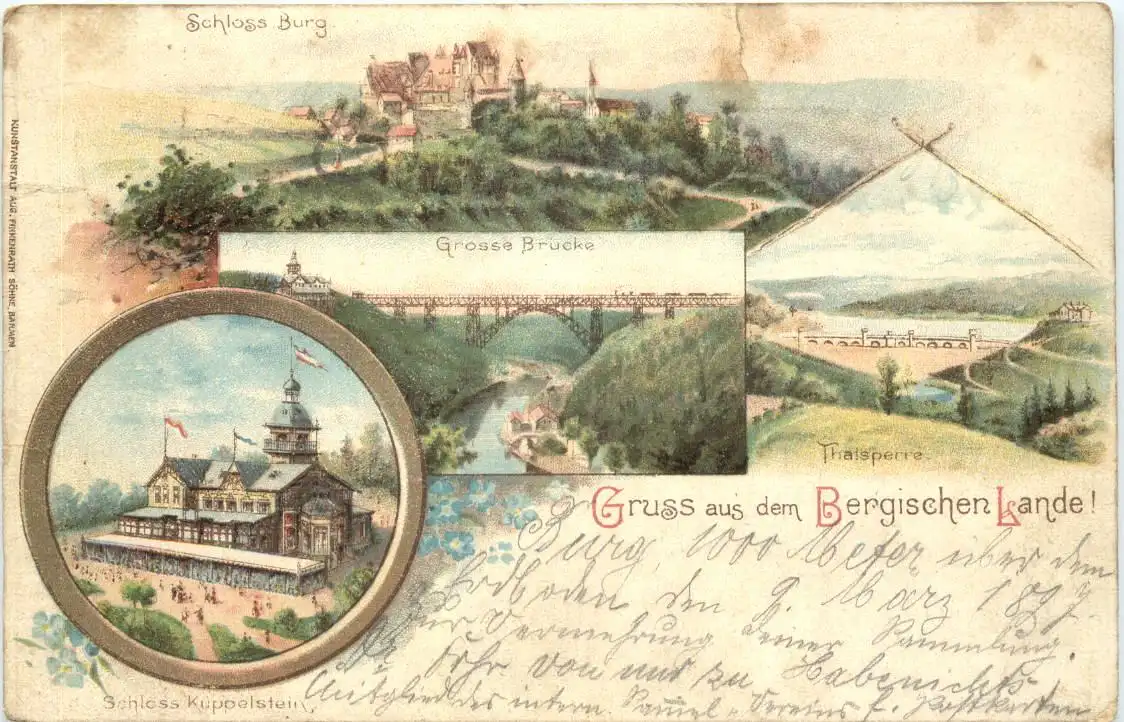 Schloss Burg
KUNSTANSTALT AUG. FINKENRATH SÖHNE, BARMEN.
Grosse Brücke
Thalsperre.
Gruss aus dem Bergischen Lande!
Burg, 1000 Meter über dem
Erdboden den 9. März 1897
Zur Vermehrung Deiner Sammlung.
Fehr von und zu Habenichts
Mitglied des intern. Saml-Vereins f. Postkarten
Schloss Küppelstein